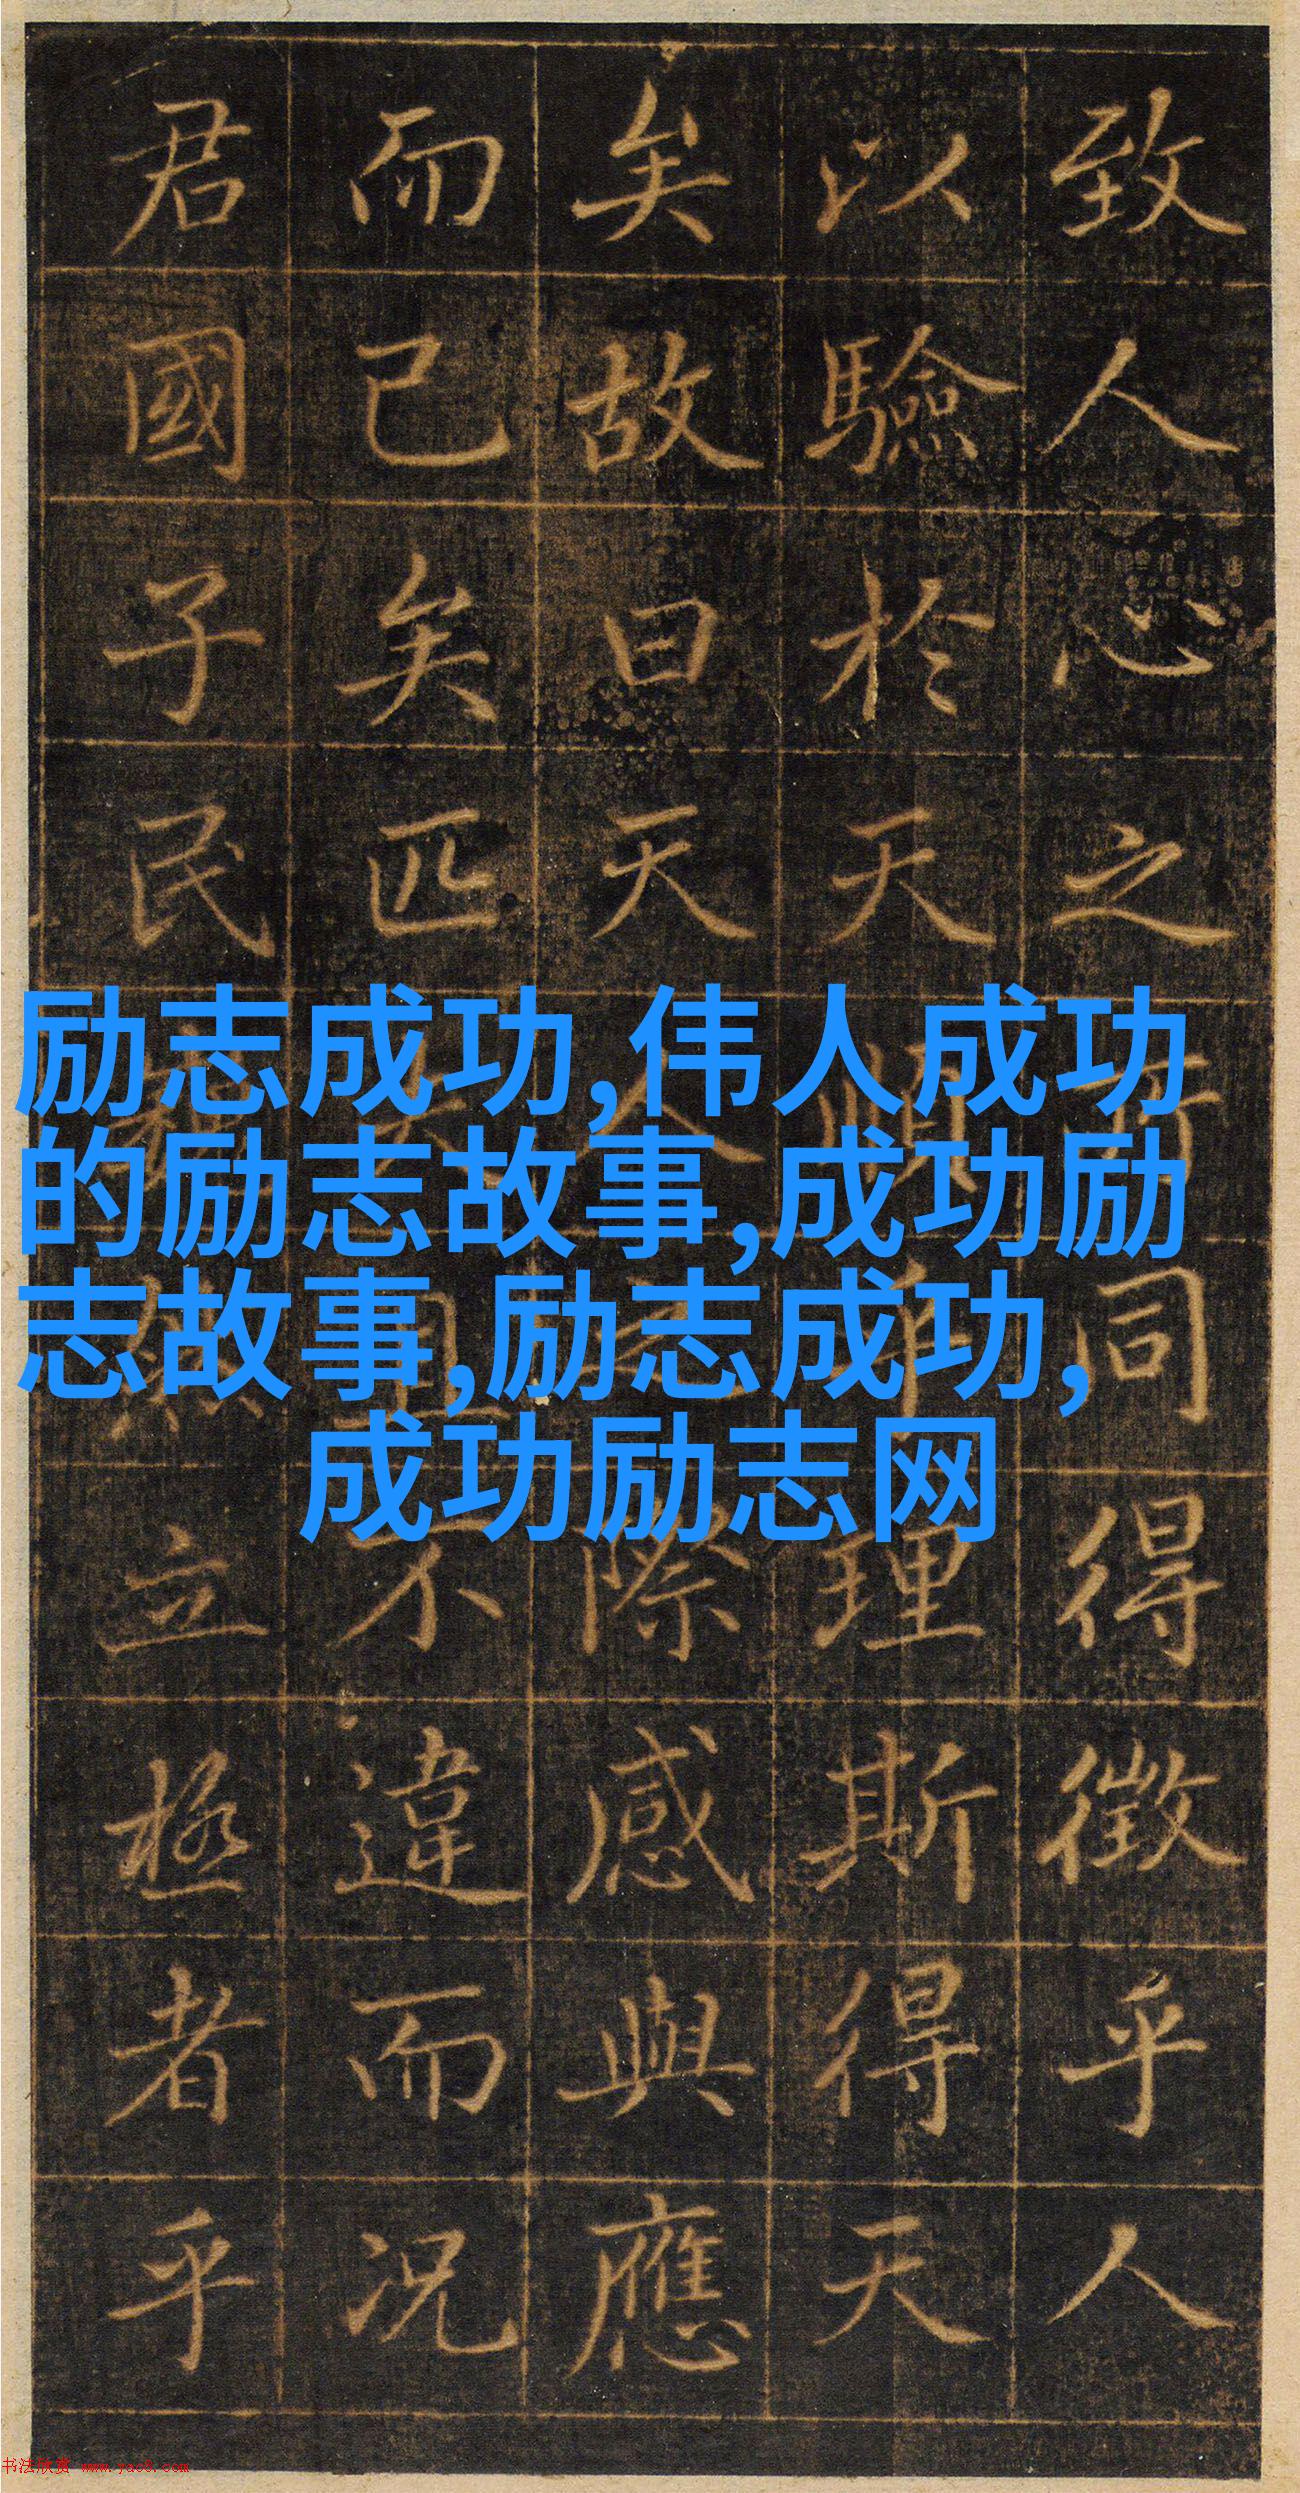 致人心之所同得徵乎人
以驗於天天順乎理斯得天
矣故曰天人之際感與應
而已矣匹夫且不違而况
君國子民然立極者乎
励志成功,伟人成功
的励志故事,成功励
志故事,励志成功,
成功励志网
书法欣赏 www.yac8.com